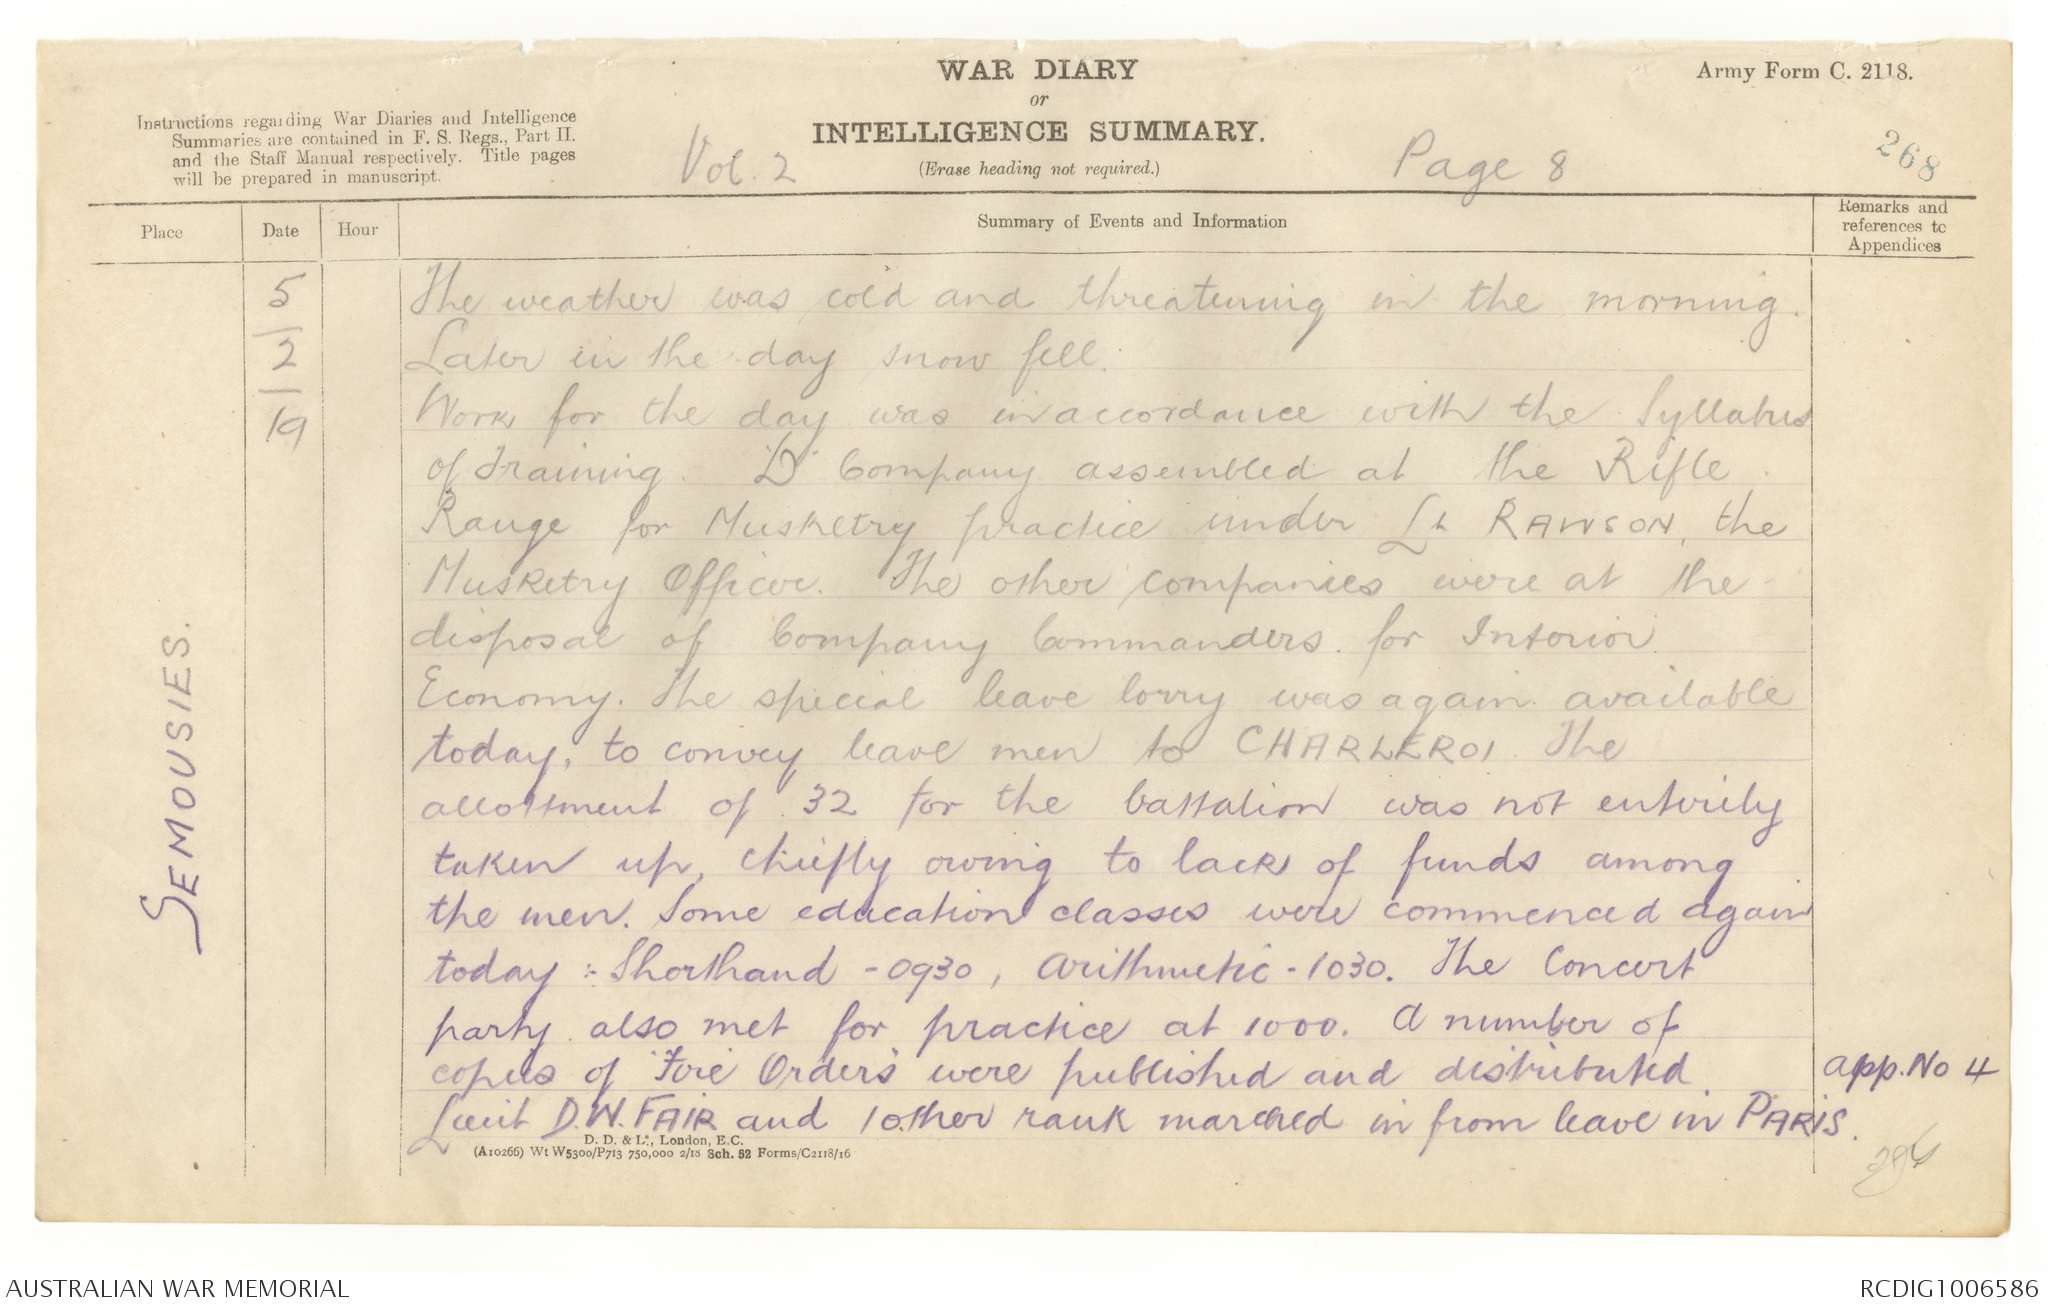 WAR DIARY
or
INTELLIGENCE SUMMARY.
(Erase heading not required.)
Army Form C. 2118.
Instructions regarding War Diaries and Intelligence
Summaries are contained in F. S. Regs., Part II.
and the Staff Manual respectively. Title pages
will be prepared in manuscript.
Vol. 2
Page 8
268
Place
Date
Hour
Summary of Events and Information
Remarks and
references to
Appendices
SEMOUSIES.
5
2
19
The weather was cold and threatening in the morning.
Later in the day snow fell.
Work for the day was in accordance with the Syllabus
of Training. "D" Company assembled at the Rifle
Range for Musketry practice under Lt RAWSON, the
Musketry Officer. The other companies were at the
disposal of Company Commanders for Interior
Economy. The special leave lorry was again available
today, to convey leave men to CHARLEROI. The
allotment of 32 for the battalion was not entirely
taken up, chiefly owing to lack of funds among
the men. Some education classes were commenced again
today :- Shorthand - 0930, Arithmetic - 1030. The Concert
party also met for practice at 1000. A number of
copies of "Fire Orders" were published and distributed.
App. No 4
Lieut D.W. FAIR and 1 other rank marched in from leave in PARIS.
D. D. & L., London, E.C.
(A10266) Wt W5300/P713 750,000 2/18 Sch. 52 Forms/C2118/16
AUSTRALIAN WAR MEMORIAL
RCDIG1006586